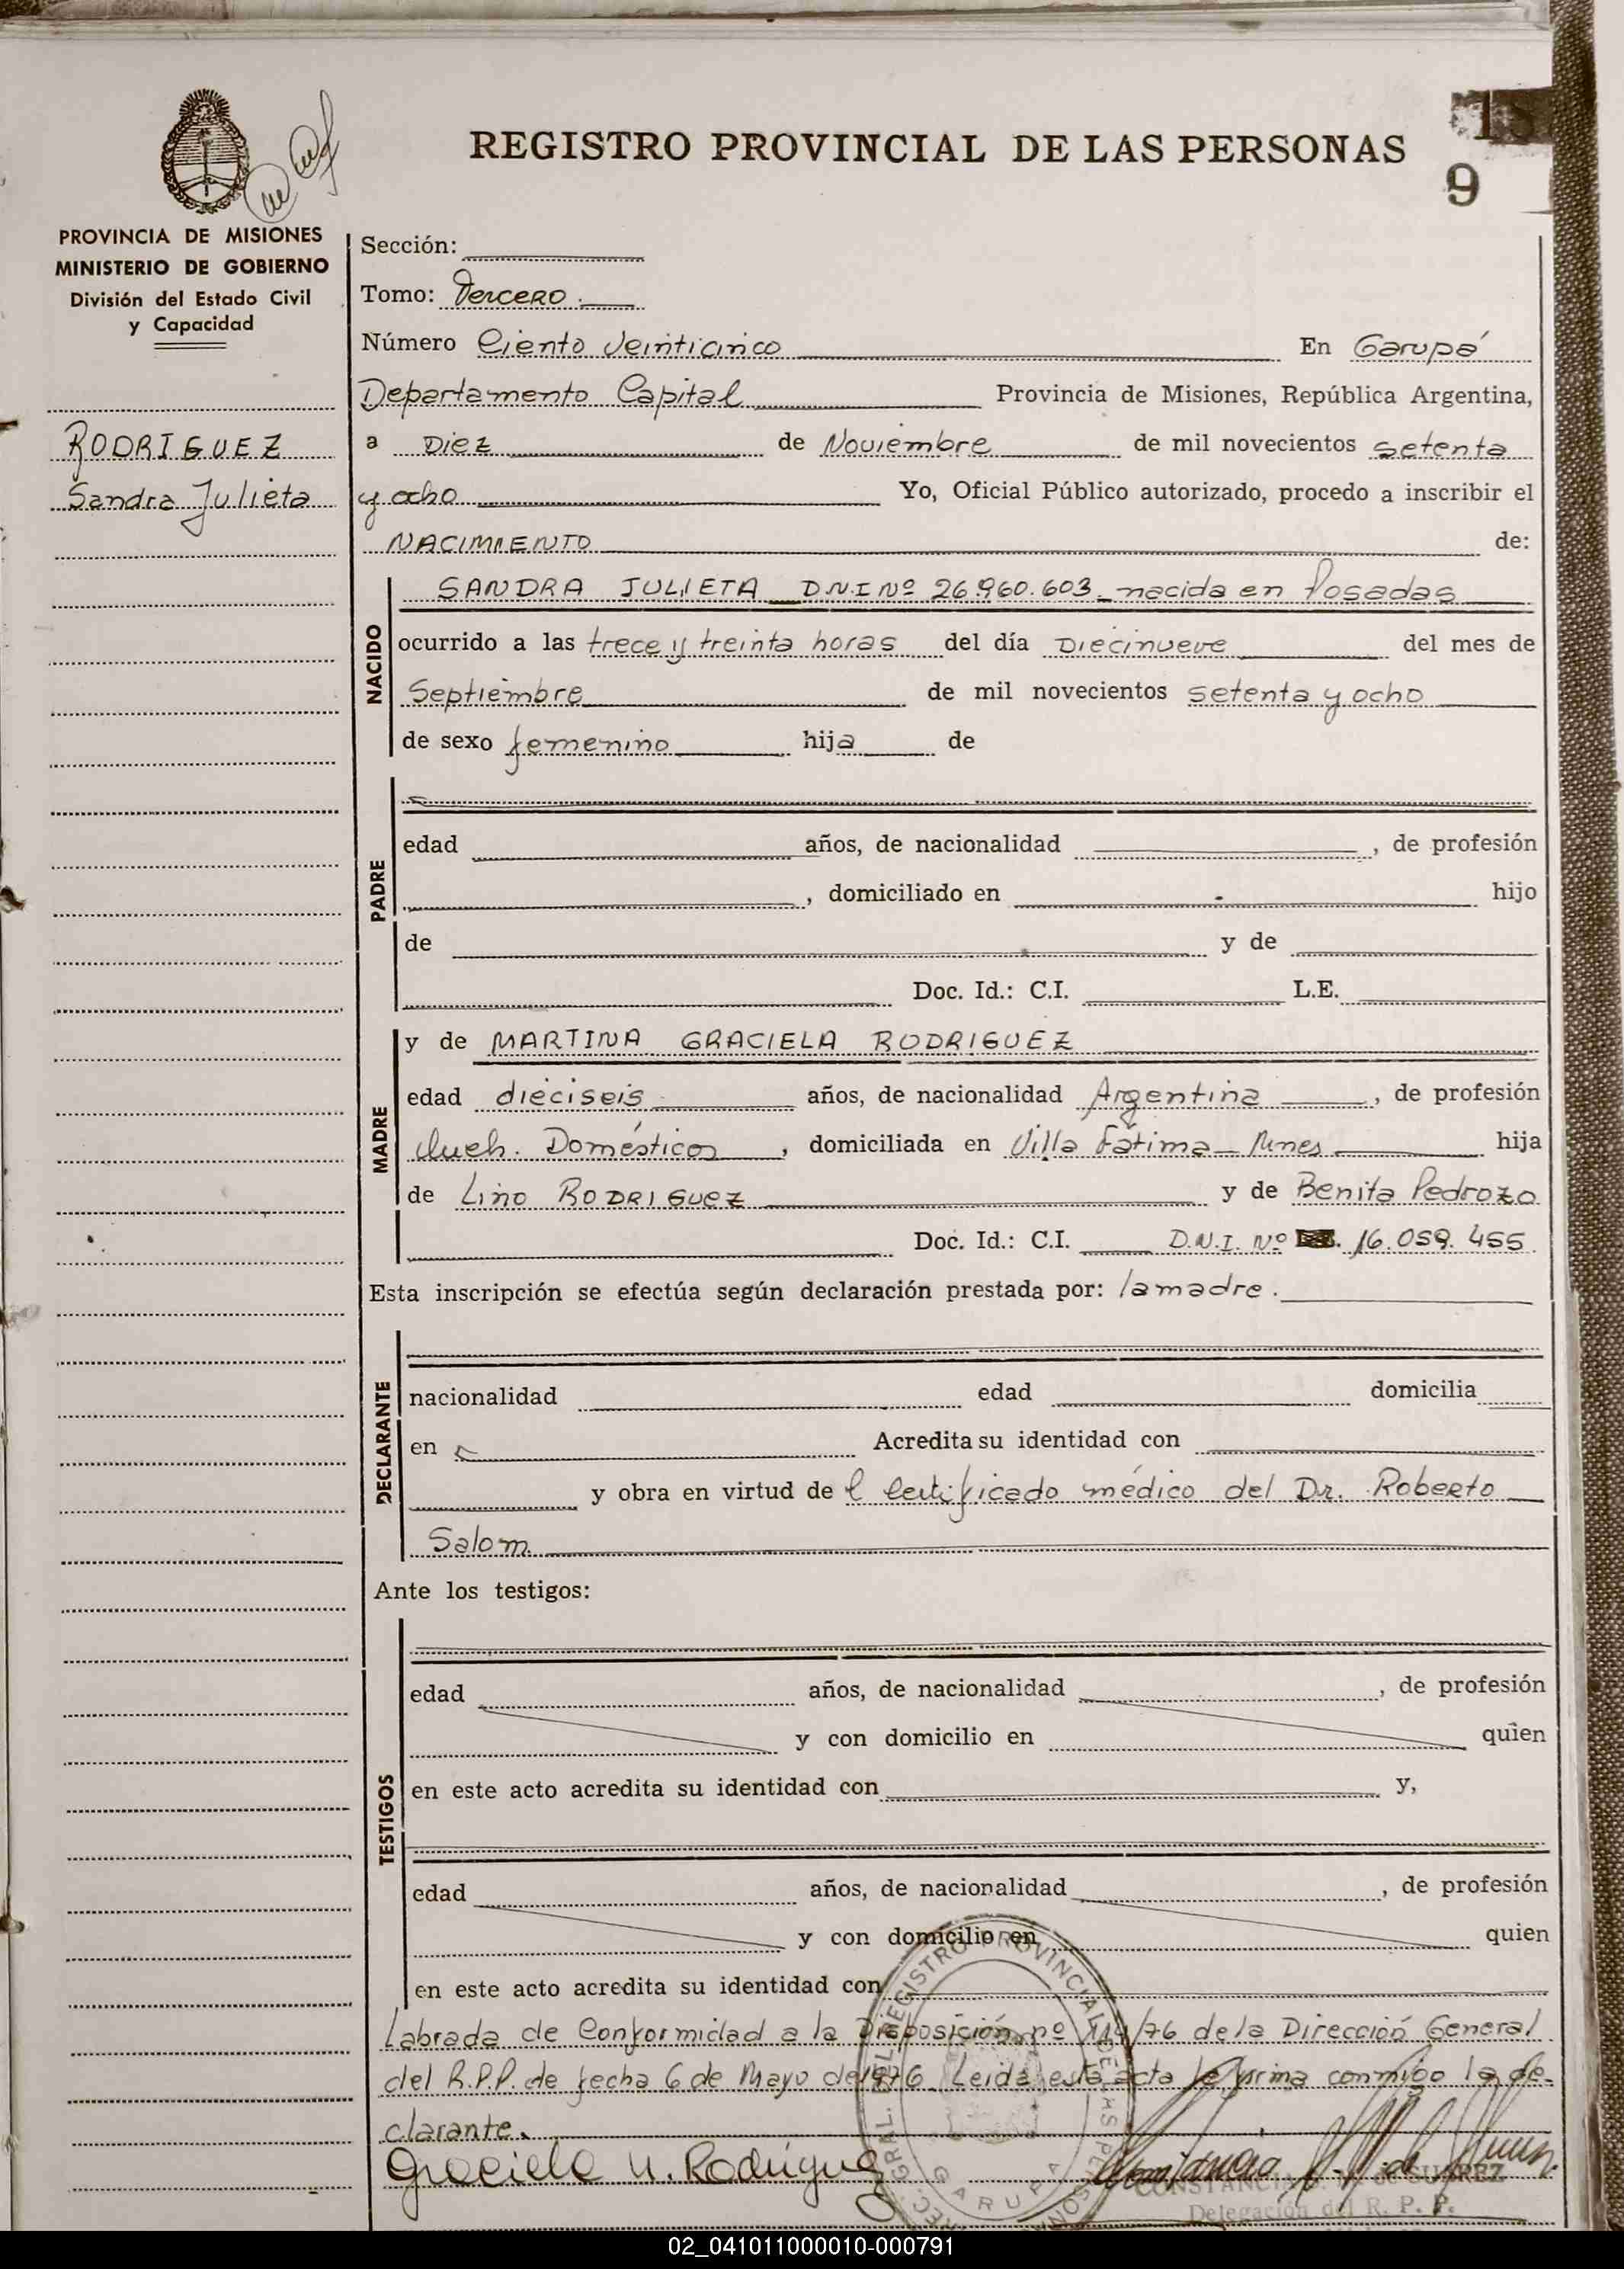 REGISTRO PROVINCIAL DE LAS PERSONAS
9
PROVINCIA DE MISIONES
MINISTERIO DE GOBIERNO
División del Estado Civil
y Capacidad
RODRIGUEZ
Sandra Julieta
Sección:
Tomo: Tercero.
Número Ciento veinticinco En Garupá
Departamento Capital Provincia de Misiones, República Argentina,
a Diez de Noviembre de mil novecientos setenta
y ocho Yo, Oficial Público autorizado, procedo a inscribir el
NACIMIENTO de:
NACIDO
SANDRA JULIETA D.N.I Nº 26.960.603 nacida en Posadas
ocurrido a las trece y treinta horas del día Diecinueve del mes de
Septiembre de mil novecientos setenta y ocho
de sexo femenino hija de
PADRE
edad años, de nacionalidad , de profesión
, domiciliado en hijo
de y de
Doc. Id.: C.I. L.E.
MADRE
y de MARTINA GRACIELA RODRIGUEZ
edad dieciseis años, de nacionalidad Argentina , de profesión
Queh. Domésticos , domiciliada en Villa Fátima hija
de Lino RODRIGUEZ y de Benita Pedrozo
Doc. Id.: C.I. D.N.I. Nº 16.059.455
Esta inscripción se efectúa según declaración prestada por: la madre.
DECLARANTE
nacionalidad edad domicilia
en Acredita su identidad con
y obra en virtud de l Certificado médico del Dr. Roberto
Salom
Ante los testigos:
TESTIGOS
edad años, de nacionalidad , de profesión
y con domicilio en quien
en este acto acredita su identidad con y,
edad años, de nacionalidad , de profesión
y con domicilio en quien
en este acto acredita su identidad con
Labrada de Conformidad a la Disposición nº 114/76 de la Dirección General
del R.P.P. de fecha 6 de Mayo de 1976. Leida esta acta la firma conmigo la de-
clarante.
Graciela M. Rodriguez
REGISTRO PROVINCIAL DE LAS PERSONAS
GARUPA
CONSTANCIA de SUAREZ
Delegación del R. P. P.
02_041011000010-000791